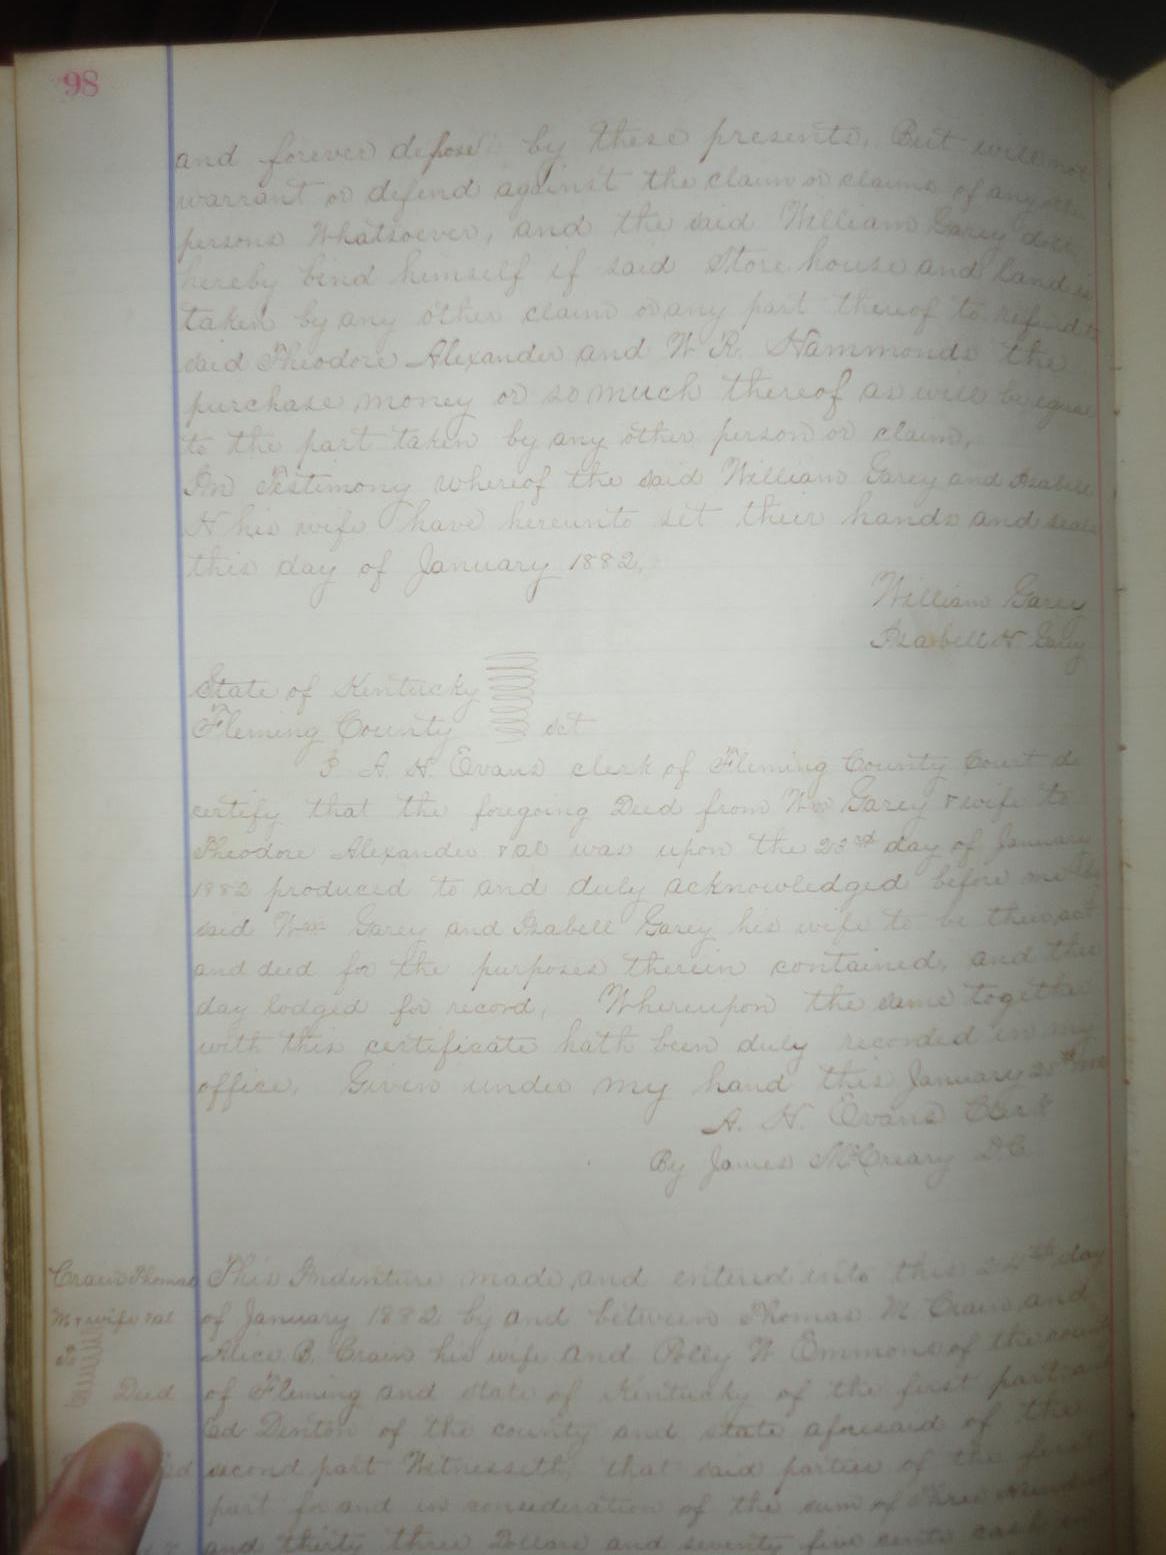 98
and forever defose by these presents, But will not
warrant or defend against the claim or claims of any other
persons Whatsoever, and the said William Garey does
hereby bind himself if said Store house and land is
taken by any other claim or any part thereof to refund to
said Theodore Alexander and W R. Hammonds the
purchase money or so much thereof as will be equal
to the part taken by any other person or claim,
In Testimony whereof the said William Garey and Isabell
H his wife have hereunto set their hands and seals
this day of January 1882,
William Garey
Isabell H Garey
State of Kentucky
Fleming County sct
I A. H. Evans clerk of Fleming County Court do
certify that the foregoing Deed from Wm Garey & wife to
Theodore Alexander & al was upon the 23rd day of January
1882 produced to and duly acknowledged before me by
said Wm Garey and Isabell Garey his wife to be their act
and deed for the purposes therein contained, and this
day lodged for record, Whereupon the same together
with this certificate hath been duly recorded in my
office. Given under my hand this January
A. H. Evans Clerk
By James McCreary D.C.
Crain Thomas
M & wife & al
To
Deed
This Indenture made and entered into this 24th day
of January 1882 by and between Thomas M Crain and
Alice B. Crain his wife and Polly W Emmons of the county
of Fleming and state of Kentucky of the first part and
Ed Denton of the county and state aforesaid of the
second part Witnesseth, that said parties of the first
part for and in consideration of the sum of Three Hundred
and thirty three Dollars and seventy five cents cash in